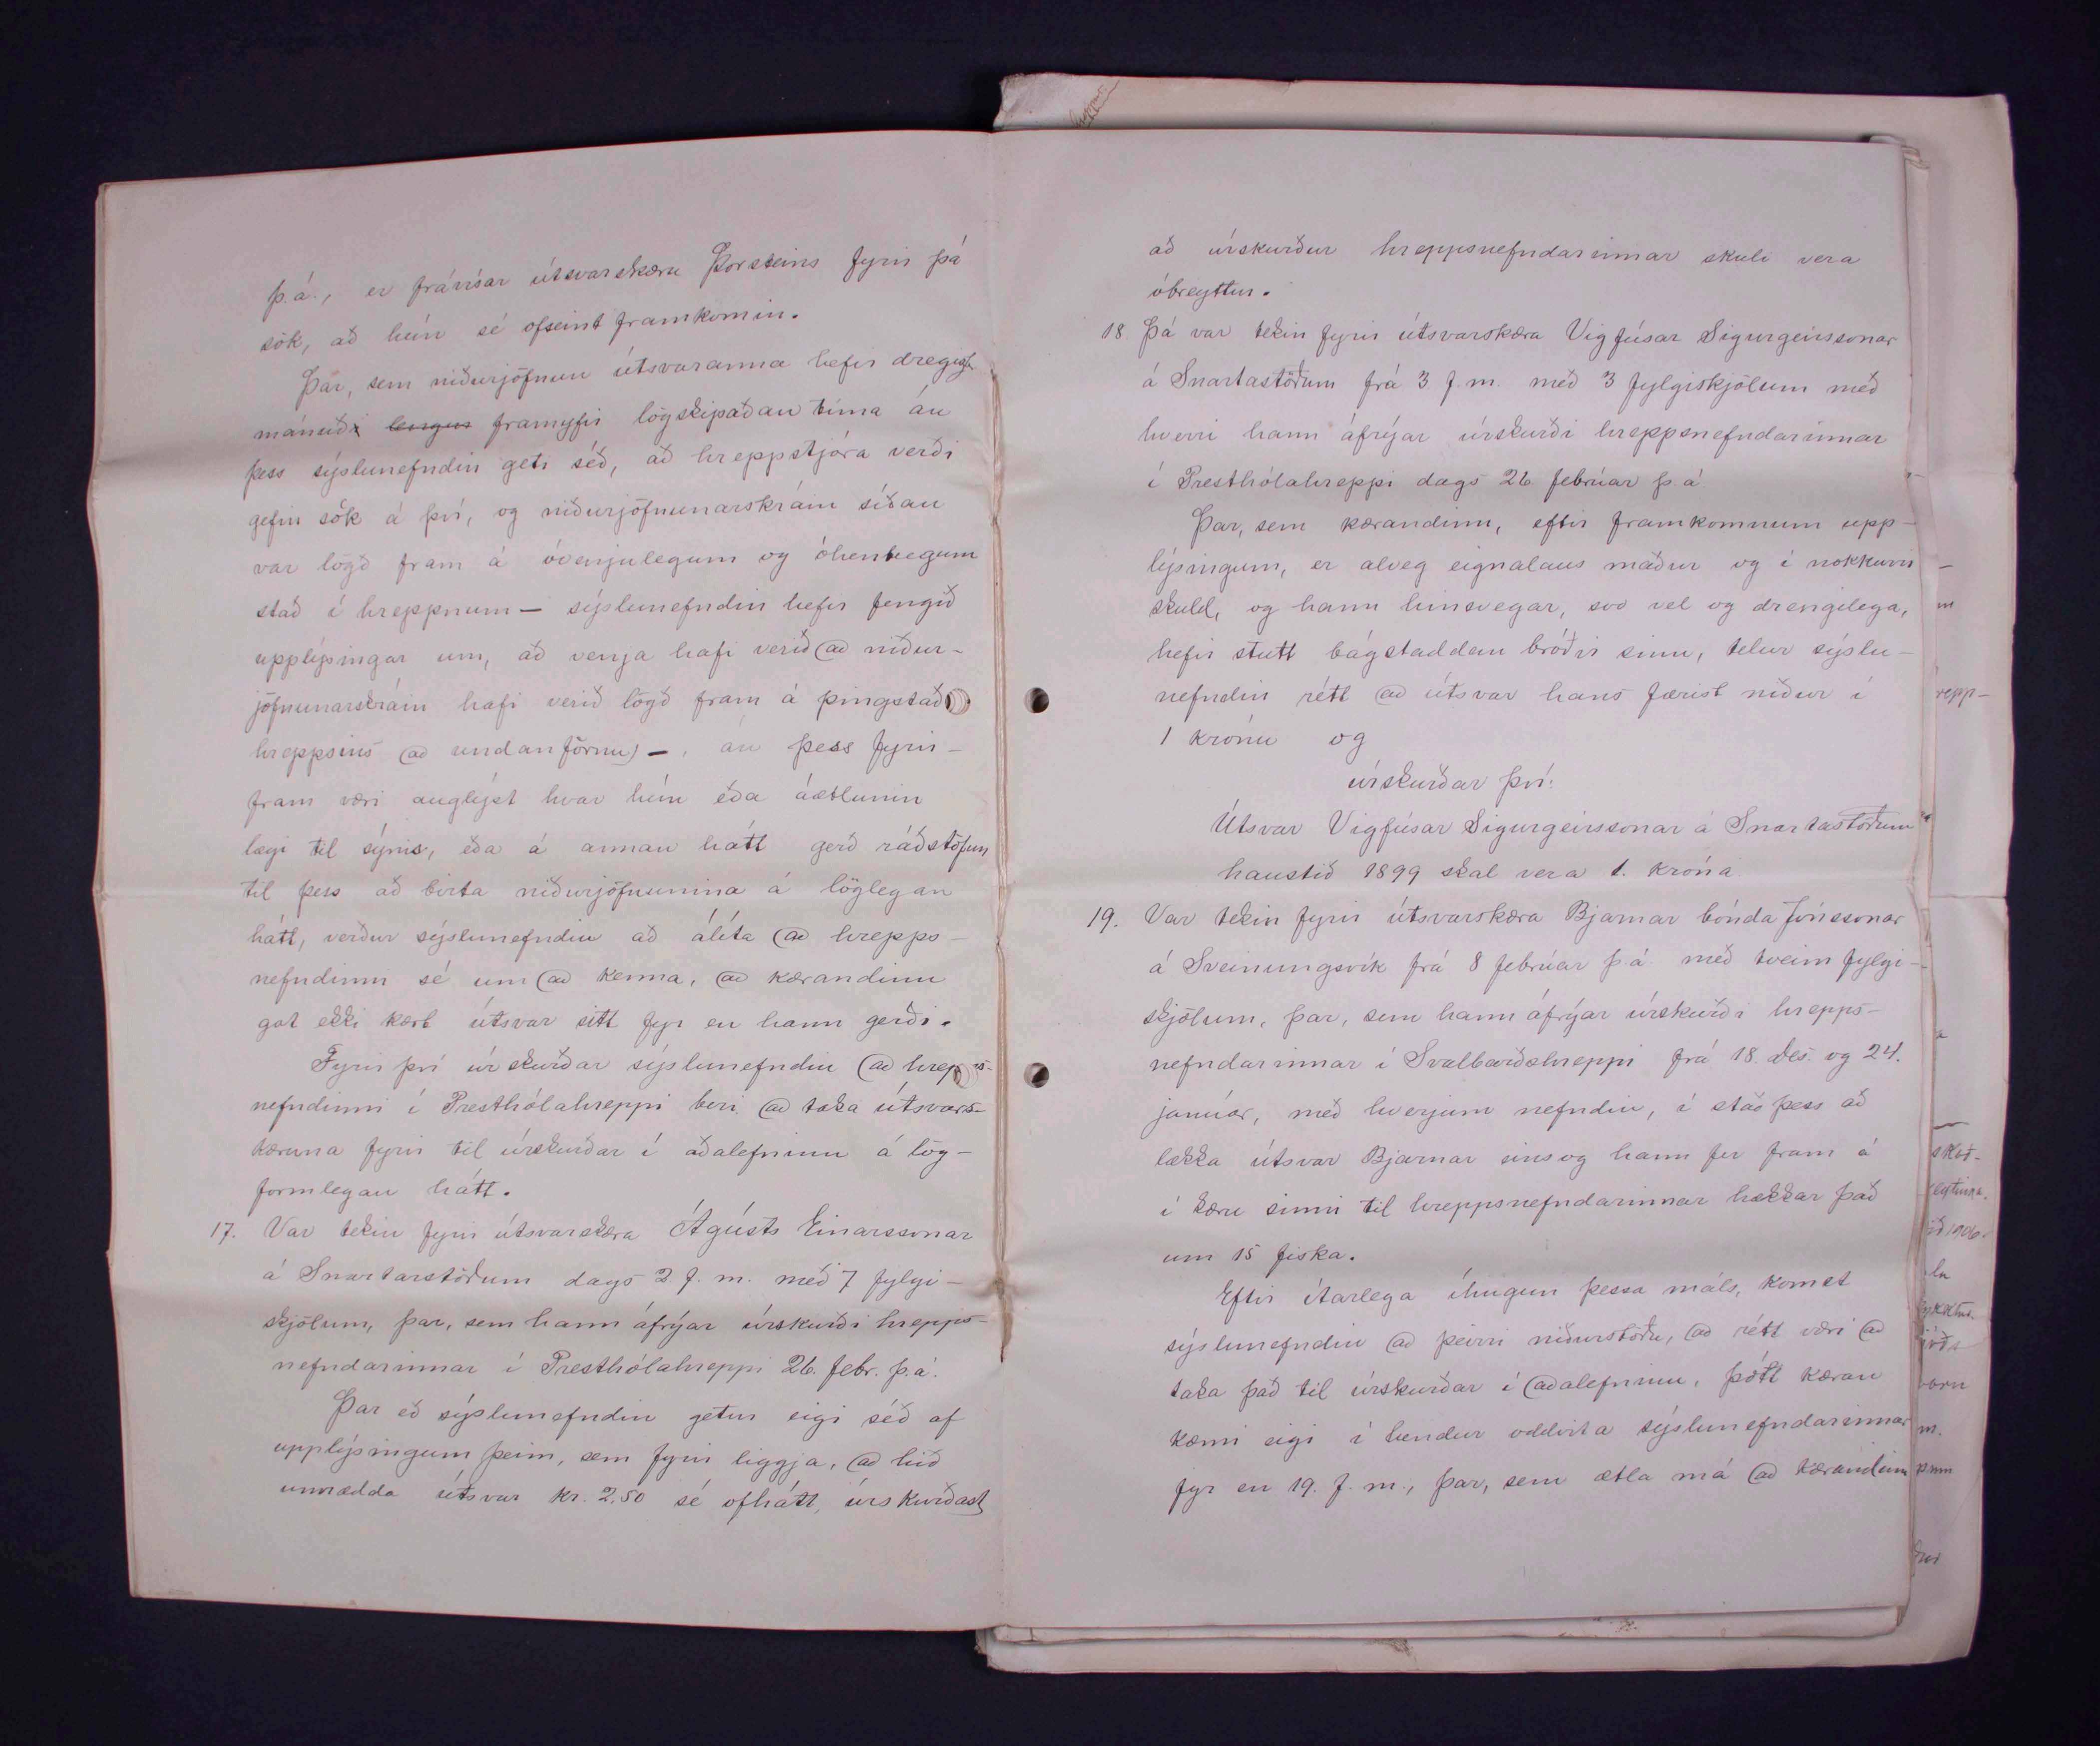 þ.á., er frávísar útsvarskæru Þorsteins fyrir þá
sök, að hún sé ofseint framkomin.
Þar, sem niðurjöfnun útsvaranna hefir dregist
mánuði lengur framyfir lögskipaðan tíma án
þess sýslunefndin geti séð, að hreppstjóra verði
gefin sök á því, og niðurjöfnunarskráin síðan
var lögð fram á óvenjulegum og óhentugum
stað í hreppnum — sýslunefndin hefir fengið
upplýsingar um, að venja hafi verið að niður-
jöfnunarskráin hafi verið lögð fram á þingstað
hreppsins að undanförnu) —, án þess fyrir-
fram væri auglýst hvar hún eða áætlunin
lægi til sýnis, eða á annan hátt gerð ráðstöfun
til þess að birta niðurjöfnunina á löglegan
hátt, verður sýslunefndin að álíta að hrepps-
nefndinni sé um að kenna, að kærandinn
gat ekki kært útsvar sitt fyr en hann gerði.
Fyrir því úrskurðar sýslunefndin að hrepps-
nefndinni í Presthólahreppi beri að taka útsvars-
kæruna fyrir til úrskurðar í aðalefninu á lög-
formlegan hátt.
17. Var tekin fyrir útsvarskæra Ágústs Einarssonar
á Snartarstöðum dags 2 f. m. með 7 fylgi-
skjölum, þar, sem hann áfrýar úrskurði hrepps-
nefndarinnar í Presthólahreppi 26. febr. þ.á.
Þar eð sýslunefndin getur eigi séð af
upplýsingum þeim, sem fyrir liggja, að hið
umrædda útsvar kr. 2.50 sé ofhátt, úrskurðast
að úrskurður hreppsnefndarinnar skuli vera
óbreyttur.
18 Þá var tekin fyrir útsvarskæra Vigfúsar Sigurgeirssonar
á Snartastöðum frá 3 f.m. með 3 fylgiskjölum með
hverri hann áfrýar úrskurði hreppsnefndarinnar
í Presthólahreppi dags 26. febrúar þ.á.
Þar, sem kærandinn, eftir framkomnum upp-
lýsingum, er alveg eignalaus maður og í nokkurri
skuld, og hann hinsvegar, svo vel og drengilega,
hefir stutt bágstaddan bróðir sinn, telur sýslu-
nefndin rétt að útsvar hans færist niður í
1 krónu og
úrskurðar því:
Útsvar Vigfúsar Sigurgeirssonar á Snartastöðum
haustið 1899 skal vera 1. króna
19. Var tekin fyrir útsvarskæra Bjarnar bónda Jónssonar
á Sveinungsvík frá 8 febrúar þ.á. með tveim fylgi-
skjölum, þar, sem hann áfrýar úrskurði hrepps-
nefndarinnar í Svalbarðshreppi frá 18. des. og 24.
janúar, með hverjum nefndin, í stað þess að
lækka útsvar Bjarnar eins og hann fer fram á
í kæru sinni til hreppsnefndarinnar hækkar það
um 15 fiska.
Eftir ítarlega íhugun þessa máls, komst
sýslunefndin að þeirri niðurstöðu, að rétt væri að
taka það til úrskurðar í aðalefninu, þótt kæran
kæmi eigi í hendur oddvita sýslunefndarinnar
fyr en 19. f. m., þar, sem ætla má að kærandinn